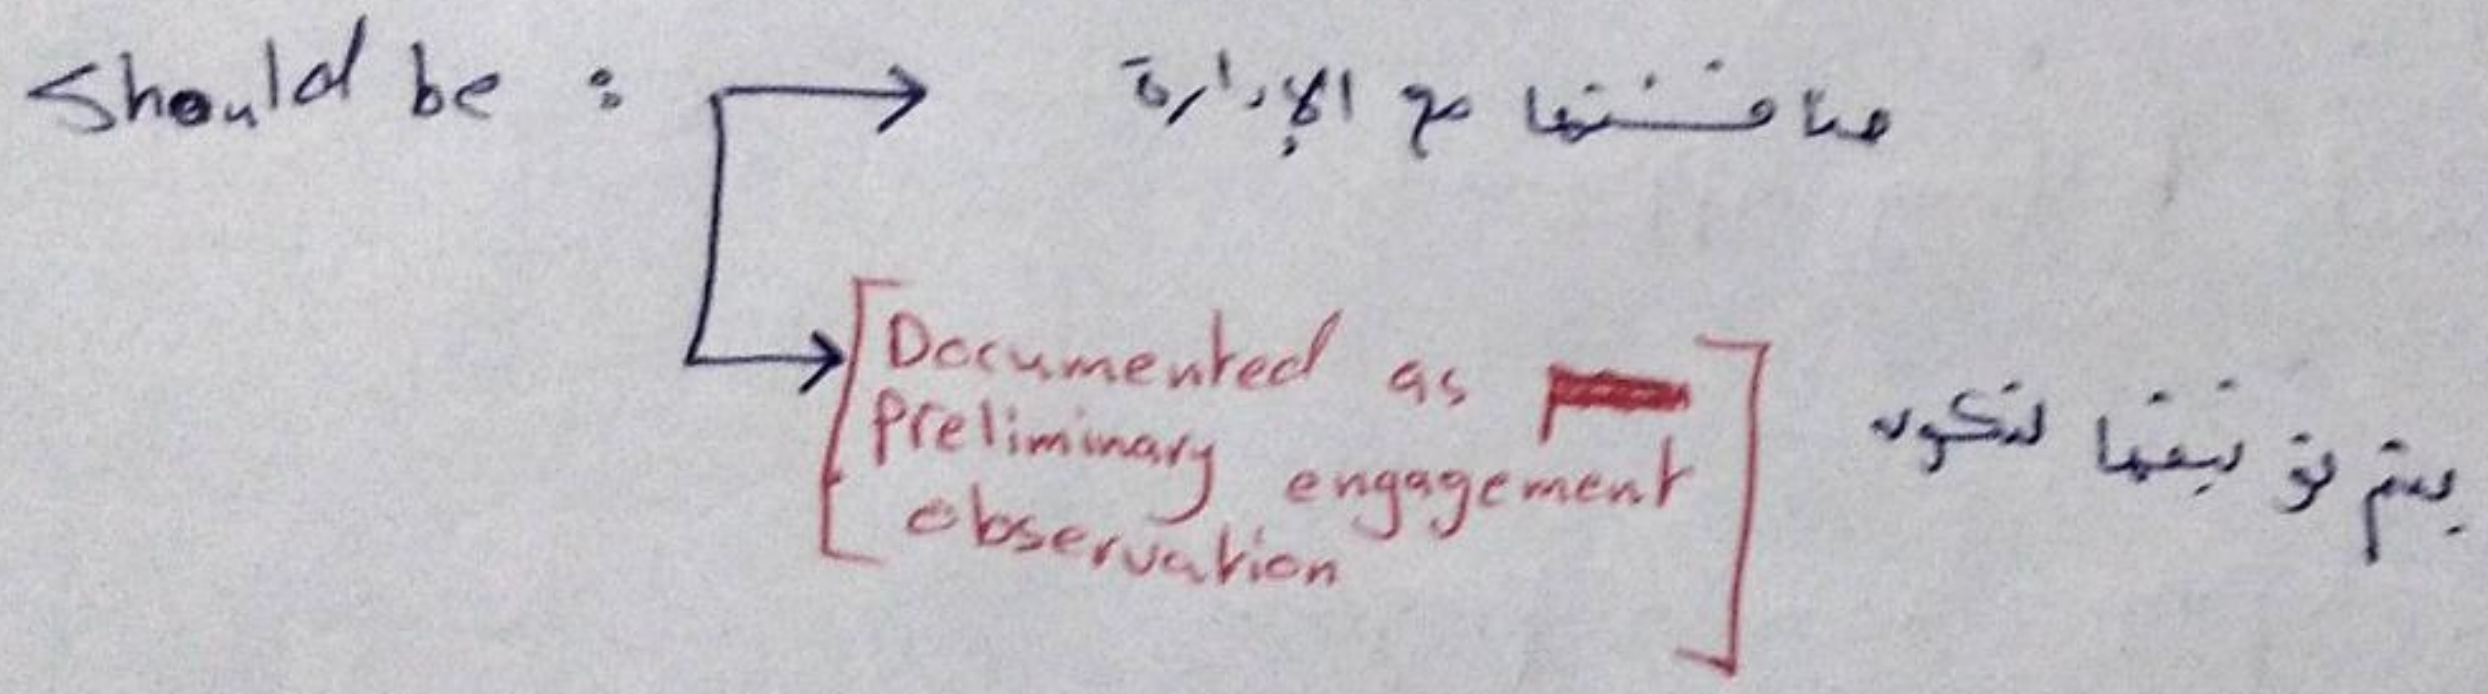 Should be : مناقشتها مع الإدارة
Documented as
Preliminary engagement
observation
يتم توثيقها لتكون